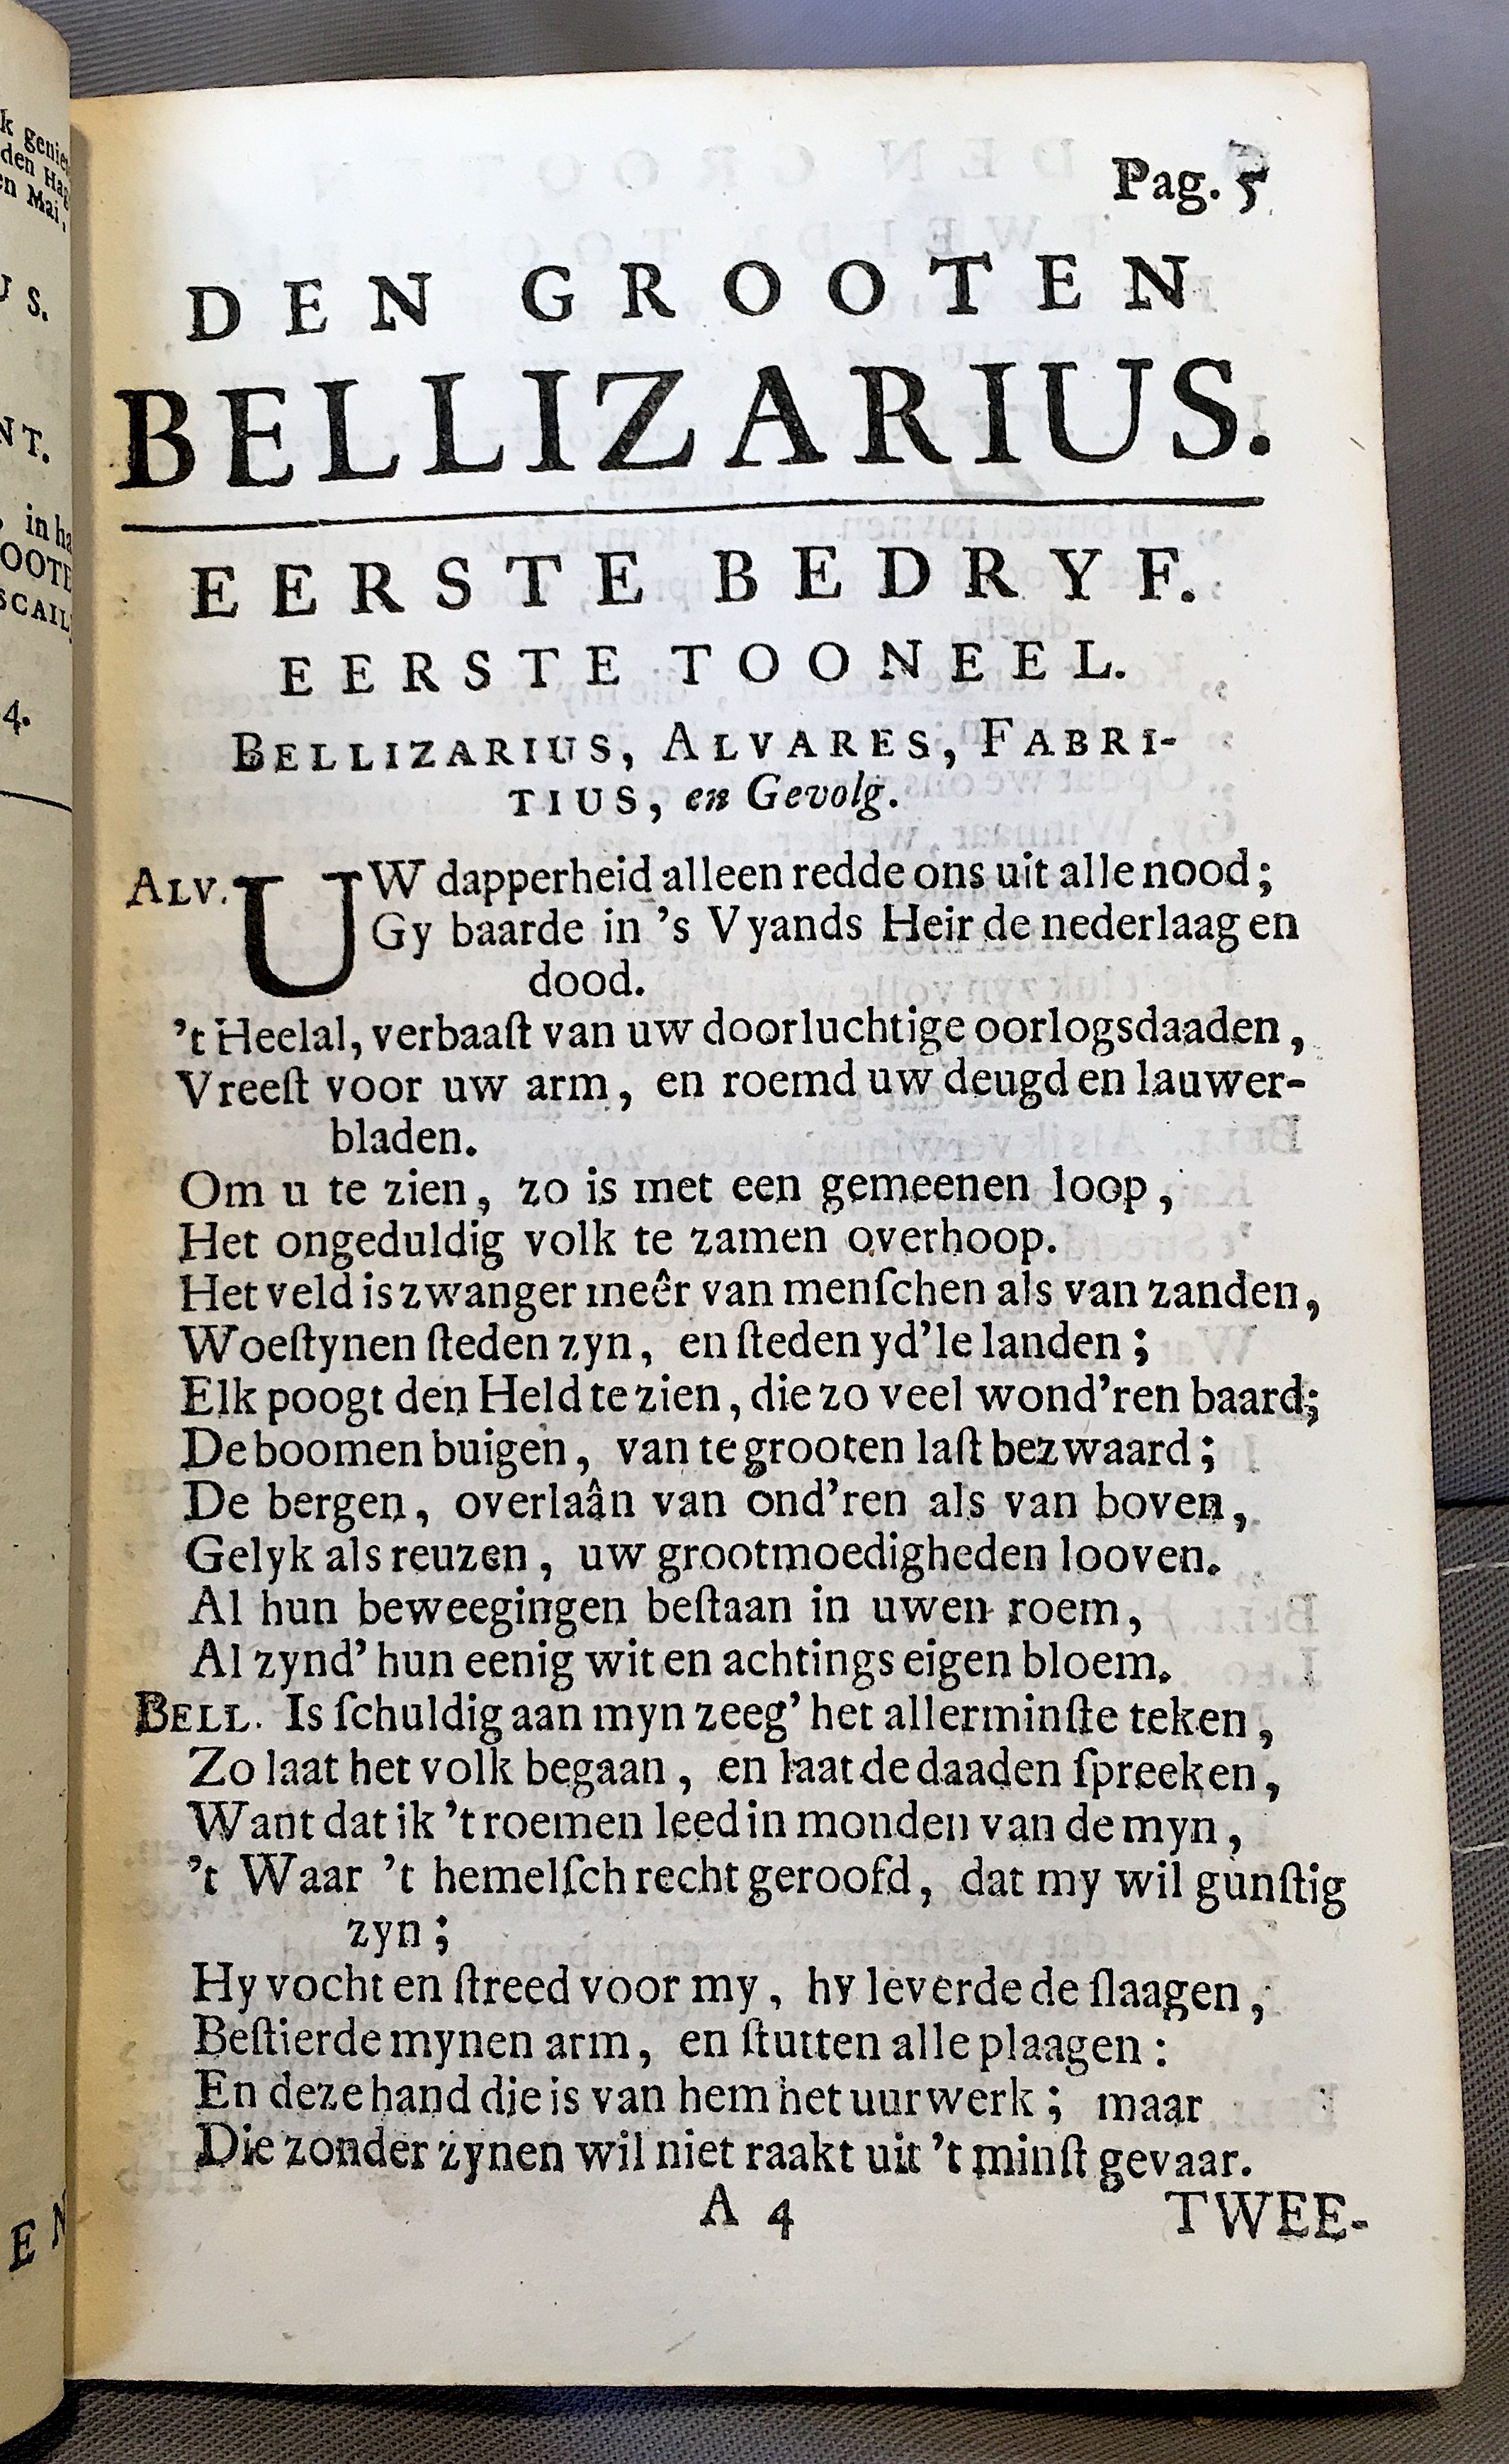 k genie
den Hag
en Mai.
U S.
NT.
in ha
OOTE
SCAIL
4.
E N
Pag. 5
DEN GROOTEN
BELLIZARIUS.
EERSTE BEDRYF.
EERSTE TOONEEL.
BELLIZARIUS, ALVARES, FABRI-
TIUS, en Gevolg.
ALV. UW dapperheid alleen redde ons uit alle nood;
Gy baarde in 's Vyands Heir de nederlaag en
dood.
't Heelal, verbaaſt van uw doorluchtige oorlogsdaaden,
Vreeſt voor uw arm, en roemd uw deugd en lauwer-
bladen.
Om u te zien, zo is met een gemeenen loop,
Het ongeduldig volk te zamen overhoop.
Het veld is zwanger meêr van menſchen als van zanden,
Woeſtynen ſteden zyn, en ſteden yd'le landen;
Elk poogt den Held te zien, die zo veel wond'ren baard;
De boomen buigen, van te grooten laſt bezwaard;
De bergen, overlaân van ond'ren als van boven,
Gelyk als reuzen, uw grootmoedigheden looven.
Al hun beweegingen beſtaan in uwen roem,
Al zynd' hun eenig wit en achtings eigen bloem.
BELL. Is ſchuldig aan myn zeeg' het allerminſte teken,
Zo laat het volk begaan, en laat de daaden ſpreeken,
Want dat ik 't roemen leed in monden van de myn,
't Waar 't hemelſch recht geroofd, dat my wil gunſtig
zyn;
Hy vocht en ſtreed voor my, hy leverde de ſlaagen,
Beſtierde mynen arm, en ſtutten alle plaagen:
En deze hand die is van hem het uurwerk; maar
Die zonder zynen wil niet raakt uit 't minſt gevaar.
A 4
TWEE-